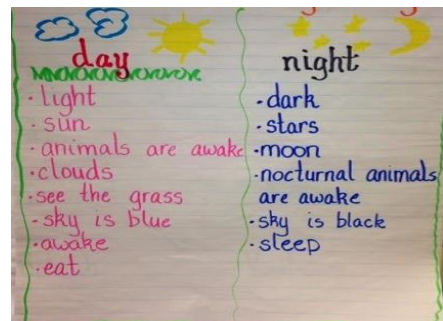 day
·light
·sun
·animals are awake
·clouds
·see the grass
·sky is blue
·awake
·eat
night
·dark
·stars
·moon
·nocturnal animals
are awake
·sky is black
·sleep